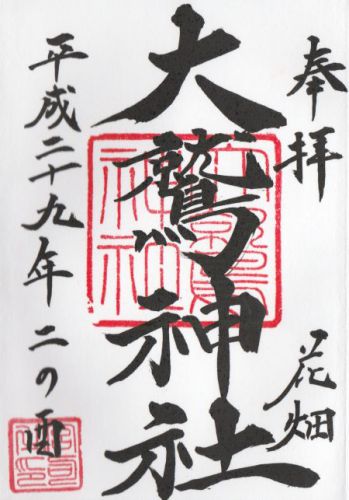 奉拝
花畑
大鷲神社
平成二十九年二の酉